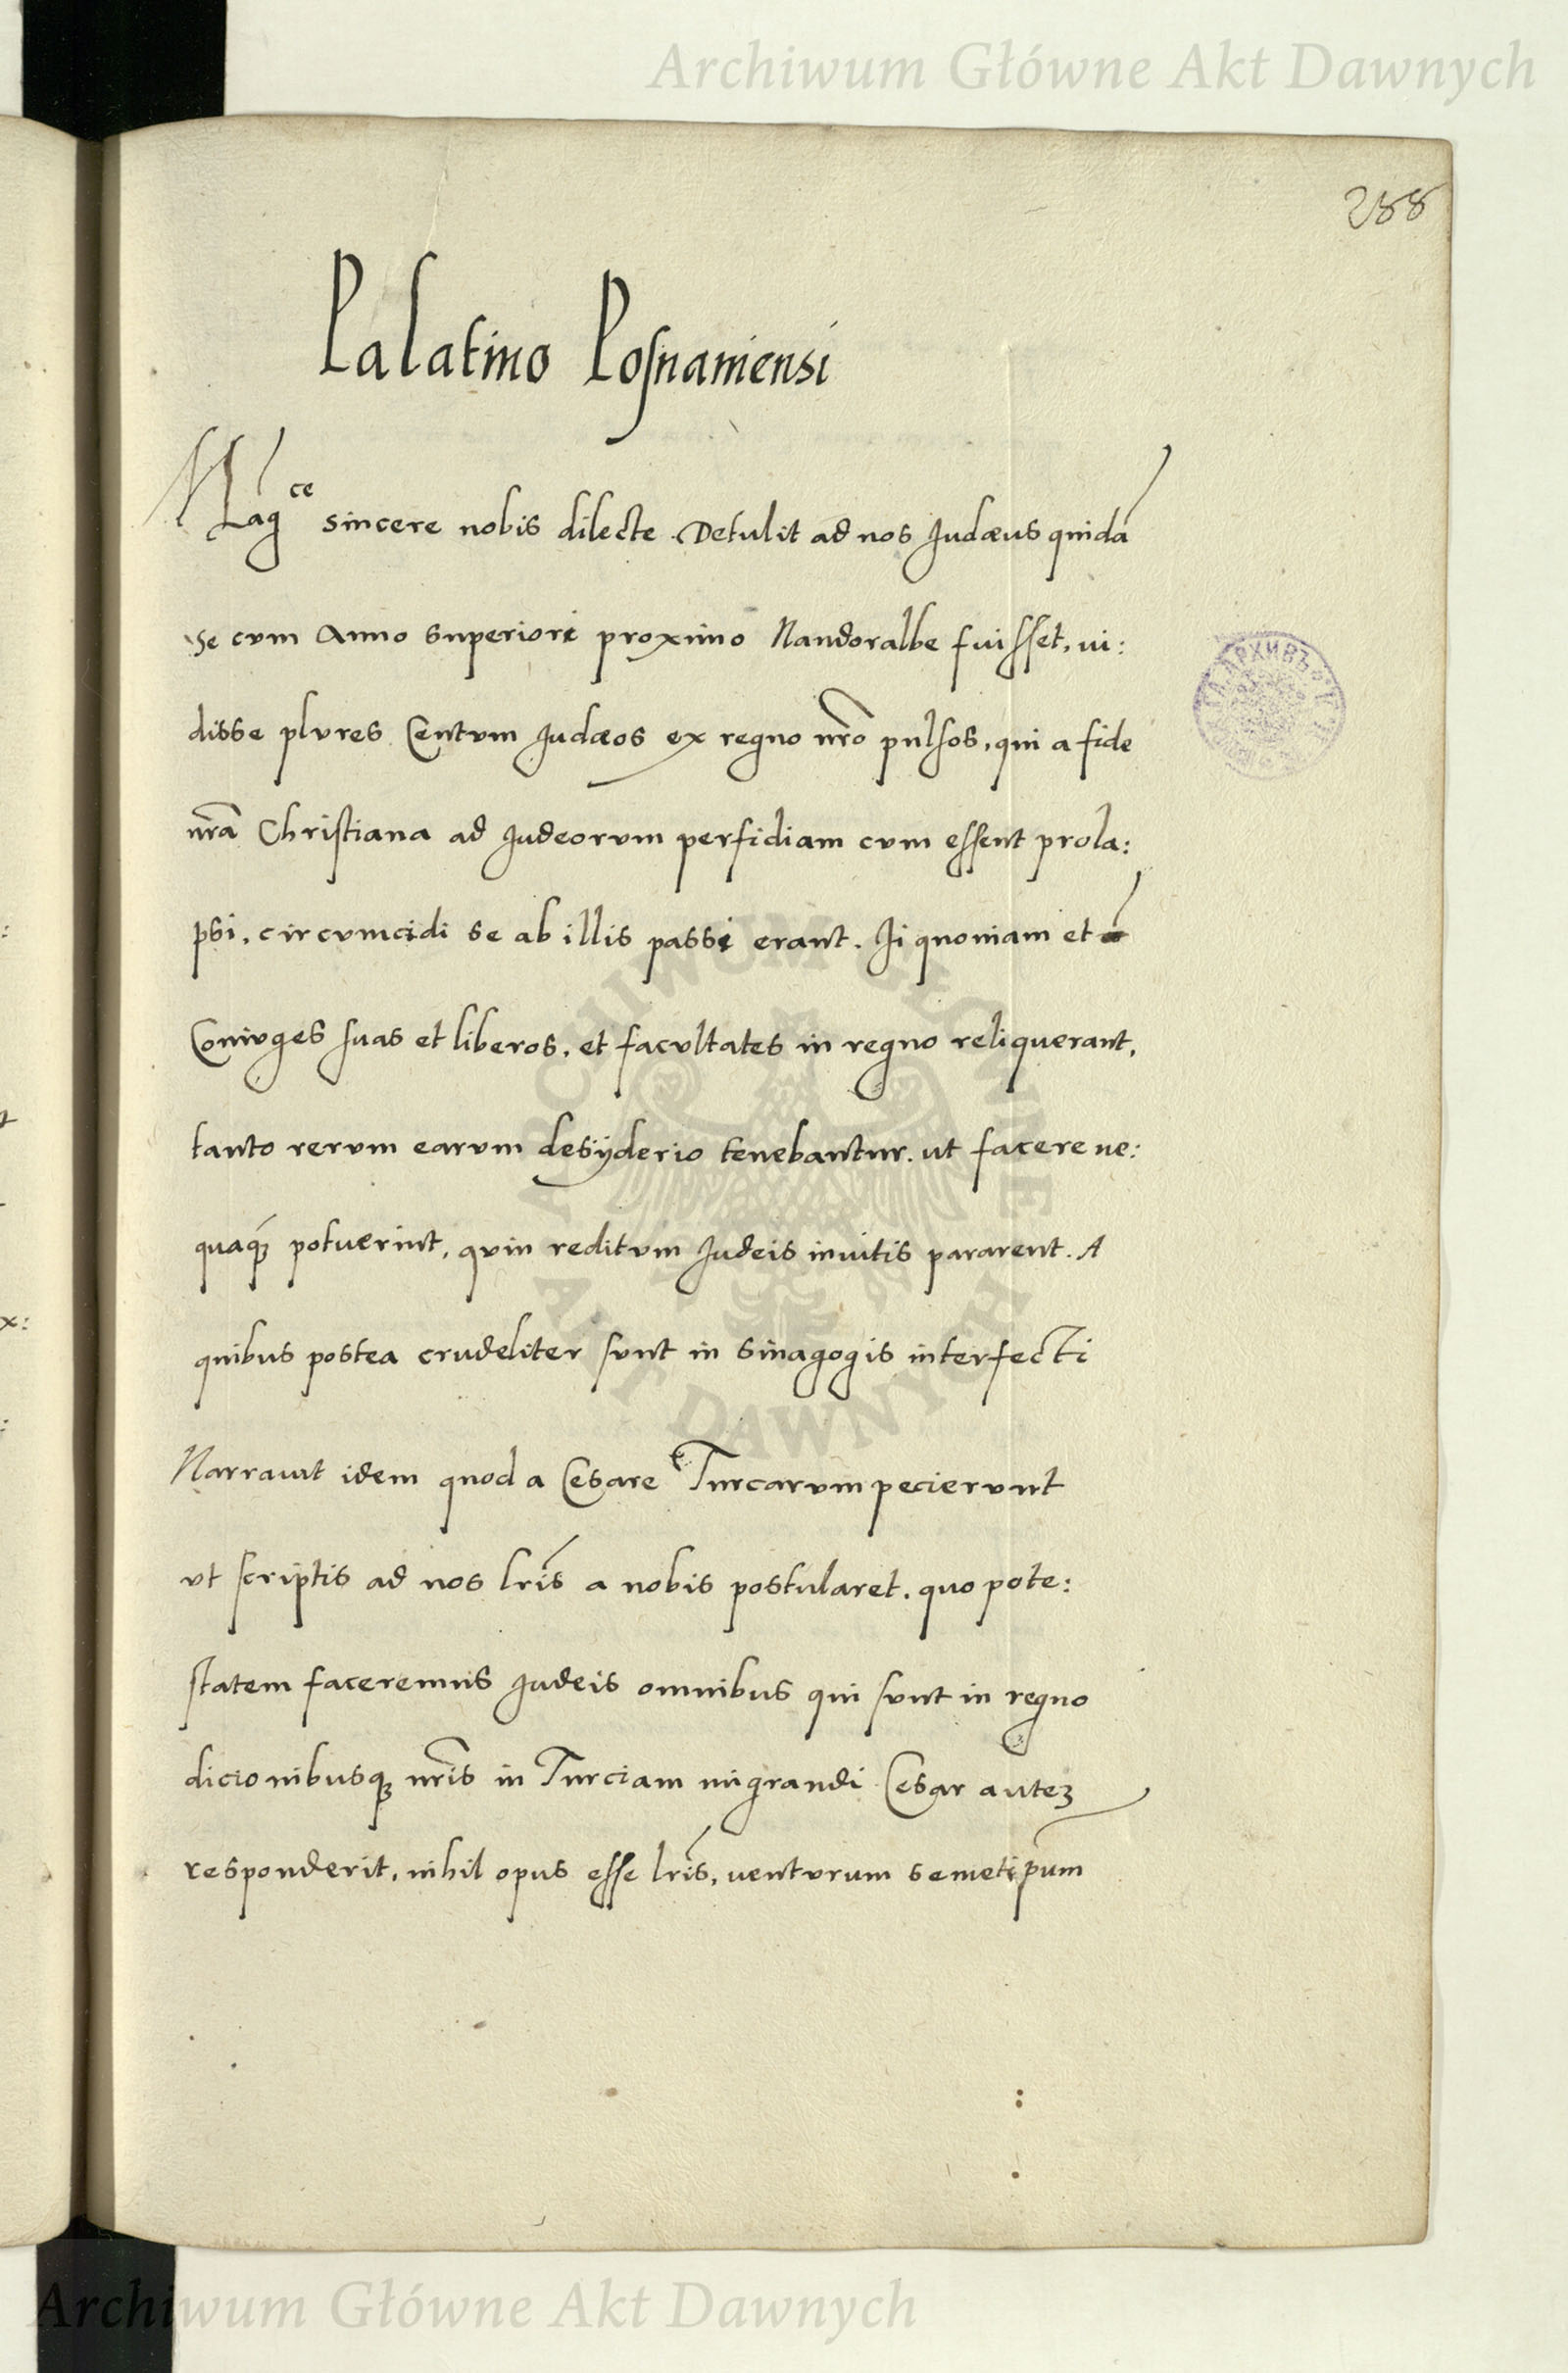 Archiwum Główne Akt Dawnych
288
Palatino Posnaniensi
Mag^ce sincere nobis dilecte. Detulit ad nos Judæus quidā
se cum Anno superiori proximo Nandoralbe fuisset, ui:
disse plures Centum Judæos ex regno nr̄o pulsos, qui a fide
nr̄a Christiana ad Judeorum perfidiam cum essent prola:
psi, circumcidi se ab illis passi erant. Ii quoniam et
Coniuges suas et liberos, et facultates in regno reliquerant,
tanto rerum earum desyderio tenebantur. ut facere ne:
quaq́ potuerint, quin reditum Judeis inuitis pararent. A
quibus postea crudeliter sunt in sinagogis interfecti
Narrauit idem quod a Cesare Turcarum pecierunt
ut scriptis ad nos lr̄is a nobis postularet. quo pote:
statem faceremus Judeis omnibus qui sunt in regno
dicionibusqꝫ nr̄is in Turciam migrandi Cesar auteꝫ
responderit, nihil opus esse lr̄is, venturum semetip̄um
ARCHIWUM GŁÓWNE
AKT DAWNYCH
Archiwum Główne Akt Dawnych